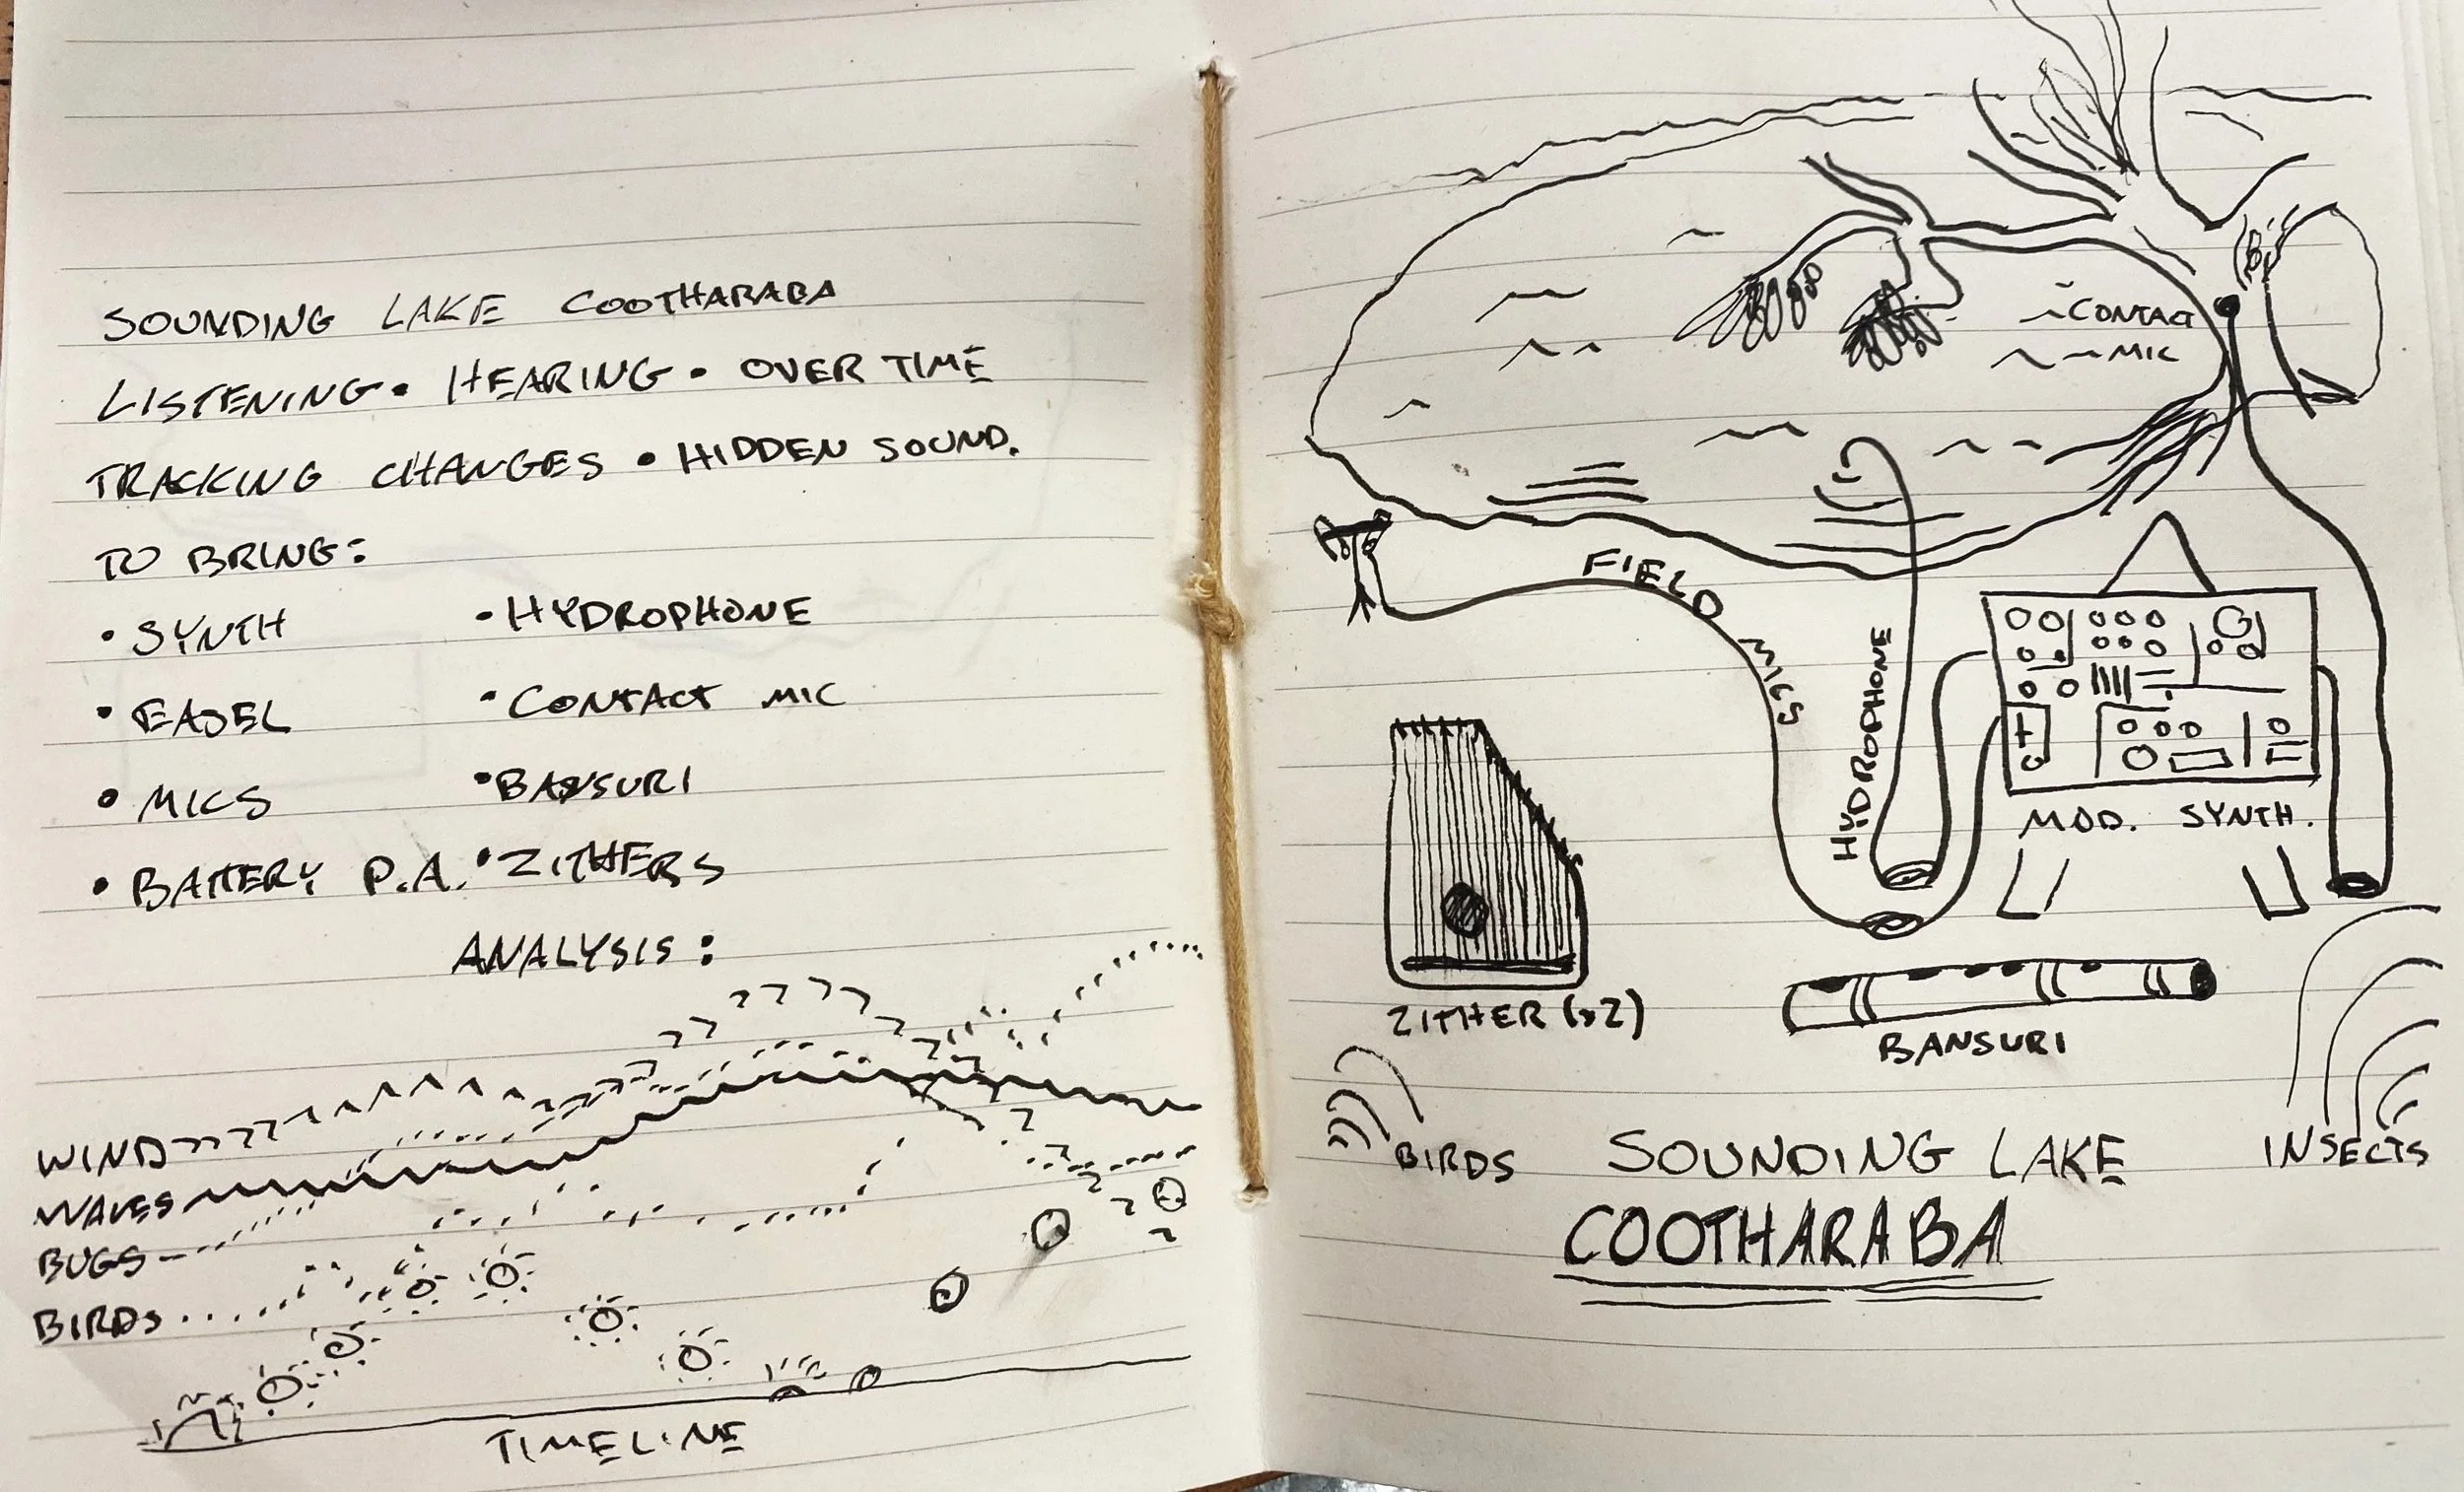 SOUNDING LAKE COOTHARABA
LISTENING • HEARING • OVER TIME
TRACKING CHANGES • HIDDEN SOUND.
TO BRING:
• SYNTH • HYDROPHONE
• EASEL • CONTACT MIC
• MICS • BANSURI
• BATTERY P.A. • ZITHERS
ANALYSIS:
WIND
WAVES
BUGS
BIRDS
TIMELINE
CONTACT
MIC
FIELD MICS
HYDROPHONE
MOD. SYNTH.
ZITHER (x2)
BANSURI
BIRDS
INSECTS
SOUNDING LAKE
COOTHARABA